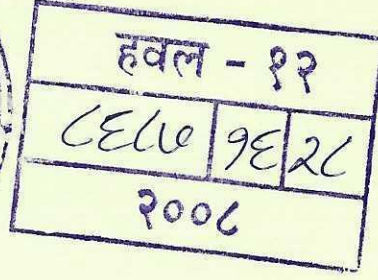 हवल - १२
८६८७ १६ २८
२००८